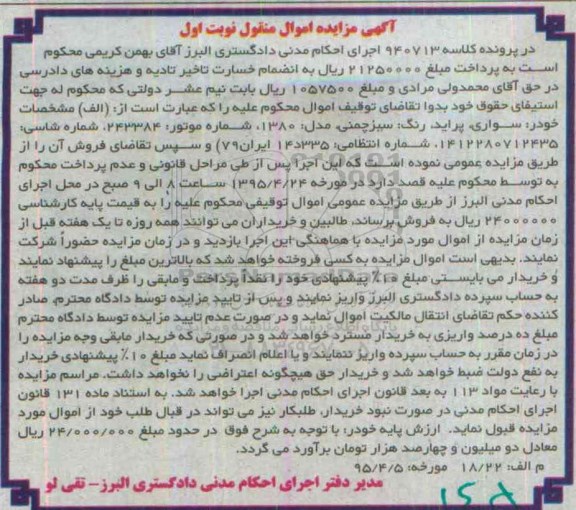 آگهی مزایده اموال منقول نوبت اول
در پرونده کلاسه ۹۴۰۷۱۳ اجرای احکام مدنی دادگستری البرز آقای بهمن کریمی محکوم
است به پرداخت مبلغ ۲۱۲۵۰۰۰۰ ریال به انضمام خسارت تاخیر تادیه و هزینه های دادرسی
در حق آقای محمدولی مرادی و مبلغ ۱۰۵۷۵۰۰ ریال بابت نیم عشر دولتی که محکوم له جهت
استیفای حقوق خود بدوا تقاضای توقیف اموال محکوم علیه را که عبارت است از: (الف) مشخصات
خودر: سواری، پراید، رنگ: سبزچمنی، مدل: ۱۳۸۰، شماره موتور: ۲۴۳۳۸۴، شماره شاسی:
۱۴۱۲۲۸۰۷۱۲۴۳۵، شماره انتظامی: ۳۳۵د۱۴ ایران۷۹) و سپس تقاضای فروش آن را از
طریق مزایده عمومی نموده است که این اجرا پس از طی مراحل قانونی و عدم پرداخت محکوم
به توسط محکوم علیه قصد دارد در مورخه ۱۳۹۵/۴/۲۴ ساعت ۸ الی ۹ صبح در محل اجرای
احکام مدنی البرز از طریق مزایده عمومی اموال توقیفی محکوم علیه را به قیمت پایه کارشناسی
۲۴۰۰۰۰۰۰ ریال به فروش برساند، طالبین و خریداران می توانند همه روزه تا یک هفته قبل از
زمان مزایده از اموال مورد مزایده با هماهنگی این اجرا بازدید و در زمان مزایده حضوراً شرکت
نمایند. بدیهی است اموال مزایده به کسی فروخته خواهد شد که بالاترین مبلغ را پیشنهاد نمایند
و خریدار می بایستی مبلغ ۱۰٪ پیشنهادی خود را نقداً پرداخت و مابقی را ظرف مدت دو هفته
به حساب سپرده دادگستری البرز واریز نمایند و پس از تایید مزایده توسط دادگاه محترم، صادر
کننده حکم تقاضای انتقال مالکیت اموال نماید و در صورت عدم تایید مزایده توسط دادگاه محترم
مبلغ ده درصد واریزی به خریدار مسترد خواهد شد و در صورتی که خریدار مابقی وجه مزایده را
در زمان مقرر به حساب سپرده واریز ننمایند و یا اعلام انصراف نماید مبلغ ۱۰٪ پیشنهادی خریدار
به نفع دولت ضبط خواهد شد و خریدار حق هیچگونه اعتراضی را نخواهد داشت. مراسم مزایده
با رعایت مواد ۱۱۳ به بعد قانون اجرای احکام مدنی اجرا خواهد شد. به استناد ماده ۱۳۱ قانون
اجرای احکام مدنی در صورت نبود خریدار، طلبکار نیز می تواند در قبال طلب خود از اموال مورد
مزایده قبول نماید. ارزش پایه خودر: با توجه به شرح فوق در حدود مبلغ ۲۴/۰۰۰/۰۰۰ ریال
معادل دو میلیون و چهارصد هزار تومان برآورد می گردد.
م الف: ۱۸/۲۲ مورخه: ۹۵/۴/۵
مدیر دفتر اجرای احکام مدنی دادگستری البرز- تقی لو